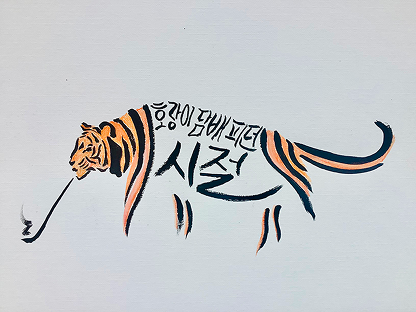 호랑이 담배 피던
시절